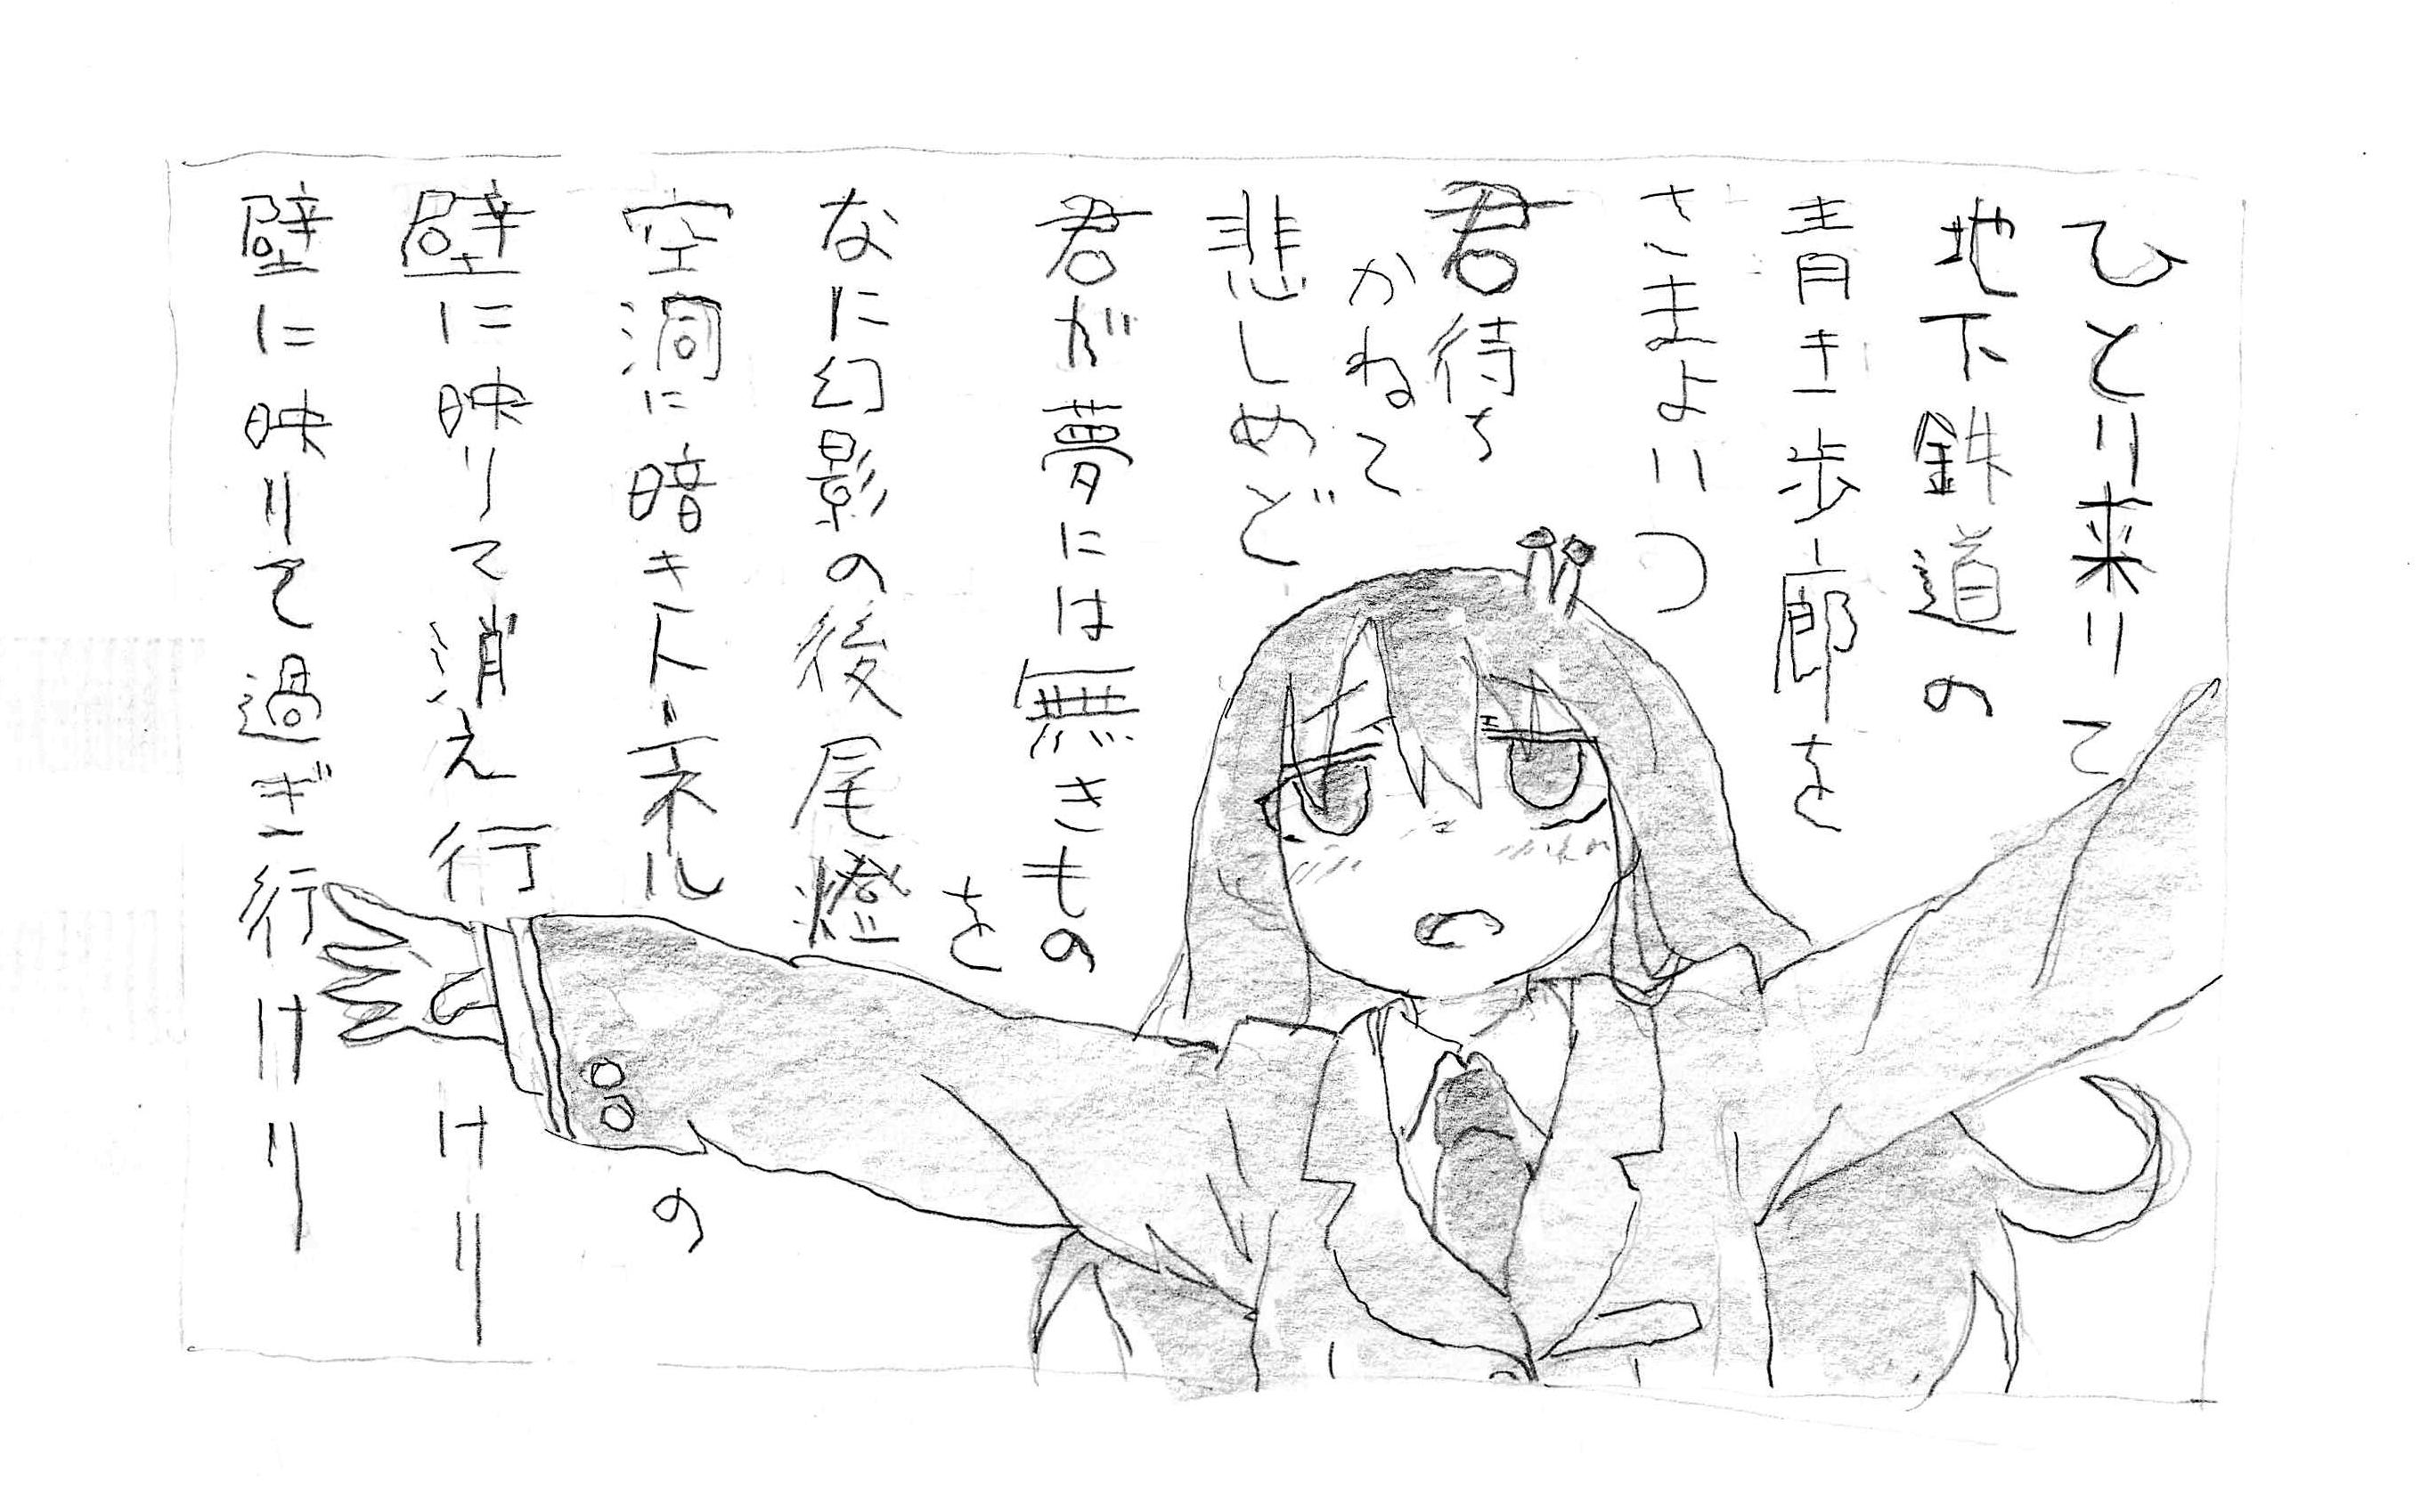 ひとり来りて
地下鉄道の
青き歩廊を
さまよいつ
君待ち
かねて
悲しめど
君が夢には無きもの
を
なに幻影の後尾燈
空洞に暗キトンネルの
壁に映りて消え行けり
壁に映りて過ぎ行けり